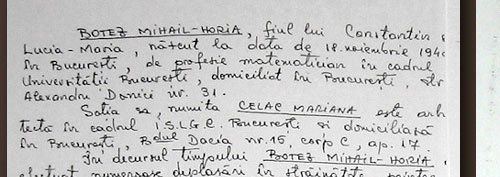 BOTEZ MIHAIL-HORIA, fiul lui Constantin
Lucia-Maria, născut la data de 18.noiembrie 194
în București, de profesie matematician în cadrul
Universității București, domiciliat în București, str
Alexandru Donici nr. 31.
Soția sa, numita CELAC MARIANA este arh
tectă în cadrul I.S.L.G.C. București și domiciliază
în București, Bdul Dacia nr.15, corp C, ap. 17.
În decursul timpului BOTEZ MIHAIL-HORIA
efectuat numeroase deplasări în străinătate printre